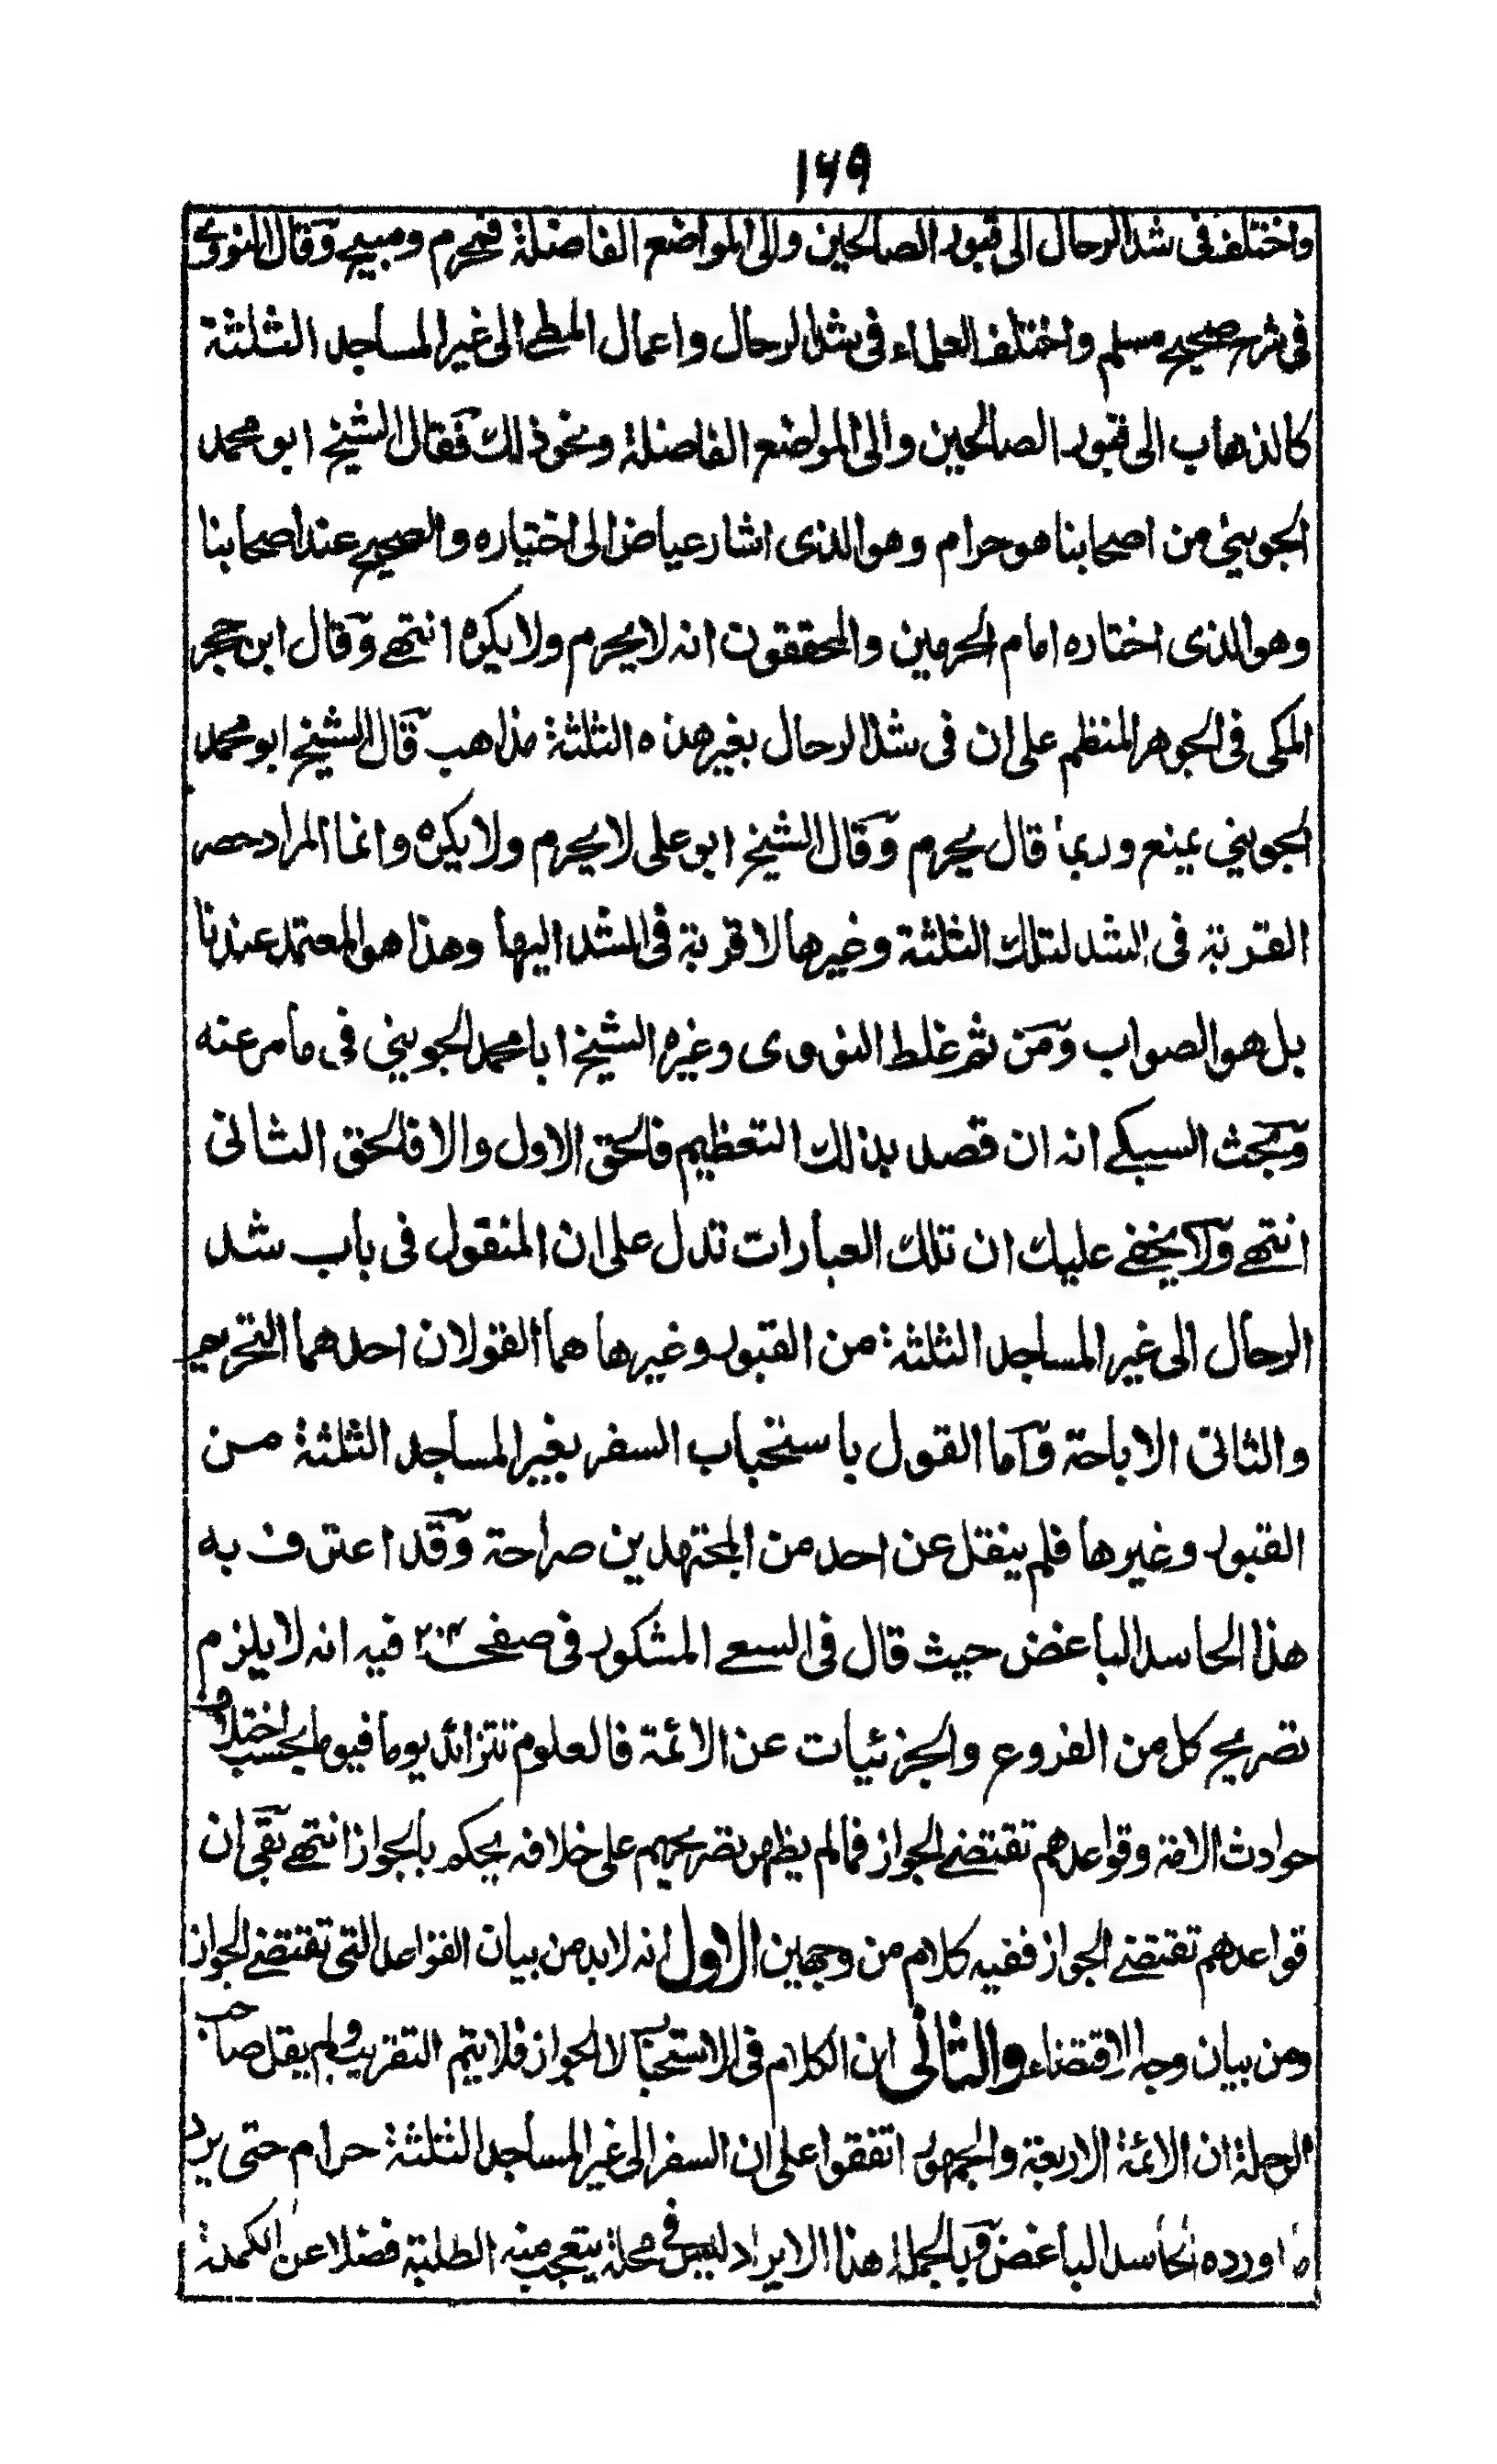 ١٦٩
واختلف فى شد الرحال الى قبور الصالحين والى المواضع الفاضلة فمحرم ومبيح وقال النووى
فى شرح صحيح مسلم واختلف العلماء فى شد الرحال واعمال المطى الى غير المساجد الثلثة
كالذهاب الى قبور الصالحين والى المواضع الفاضلة ونحو ذلك فقال الشيخ ابو محمد
الجوينى من اصحابنا هو حرام وهو الذى اشار عياض الى اختياره والصحيح عند اصحابنا
وهو الذى اختاره امام الحرمين والمحققون انه لا يحرم ولا يكره انتهى وقال ابن حجر
المكى فى الجوهر المنظم على ان فى شد الرحال بغير هذه الثلثة مذاهب قال الشيخ ابو محمد
الجوينى يمنع وربما قال يحرم وقال الشيخ ابو على لا يحرم ولا يكره وانما المراد حصر
القربة فى الشد لتلك الثلثة وغيرها لا قربة فى الشد اليها وهذا هو المعتمد عندنا
بل هو الصواب ومن ثم غلط النووى وغيره الشيخ ابا محمد الجوينى فى ما مر عنه
وبحث السبكى انه ان قصد بذلك التعظيم فالحق الاول والا فالحق الثانى
انتهى ولا يخفى عليك ان تلك العبارات تدل على ان المنقول فى باب شد
الرحال الى غير المساجد الثلثة من القبور وغيرها هما القولان احدهما التحريم
والثانى الاباحة واما القول باستحباب السفر بغير المساجد الثلثة من
القبور وغيرها فلم ينقل عن احد من المجتهدين صراحة وقد اعترف به
هذا الحاسد الباغض حيث قال فى السعى المشكور فى صفحه ٢٠٣ فيه انه لا يلزم
تصريح كل من الفروع والجزئيات عن الائمة فالعلوم تتزائد يوما فيوما بحسب اختلاف
حوادث الامة وقواعدهم تقتضى الجواز فما لم يظهر تصريحهم على خلافه يحكم بالجواز انتهى بقى ان
قواعدهم تقتضى الجواز ففيه كلام من وجهين الاول انه لابد من بيان القواعد التى تقتضى الجواز
ومن بيان وجه الاقتضاء والثانى ان الكلام فى الاستحباب لا الجواز فلا يتم التقريب ولم يقل صاحب
الرحلة ان الائمة الاربعة والجمهور اتفقوا على ان السفر الى غير المساجد الثلثة حرام حتى يرد
ما اورده الحاسد الباغض وبالجملة هذا الايراد ليس فى محلة يتعجب منه الطلبة فضلا عن الكملة